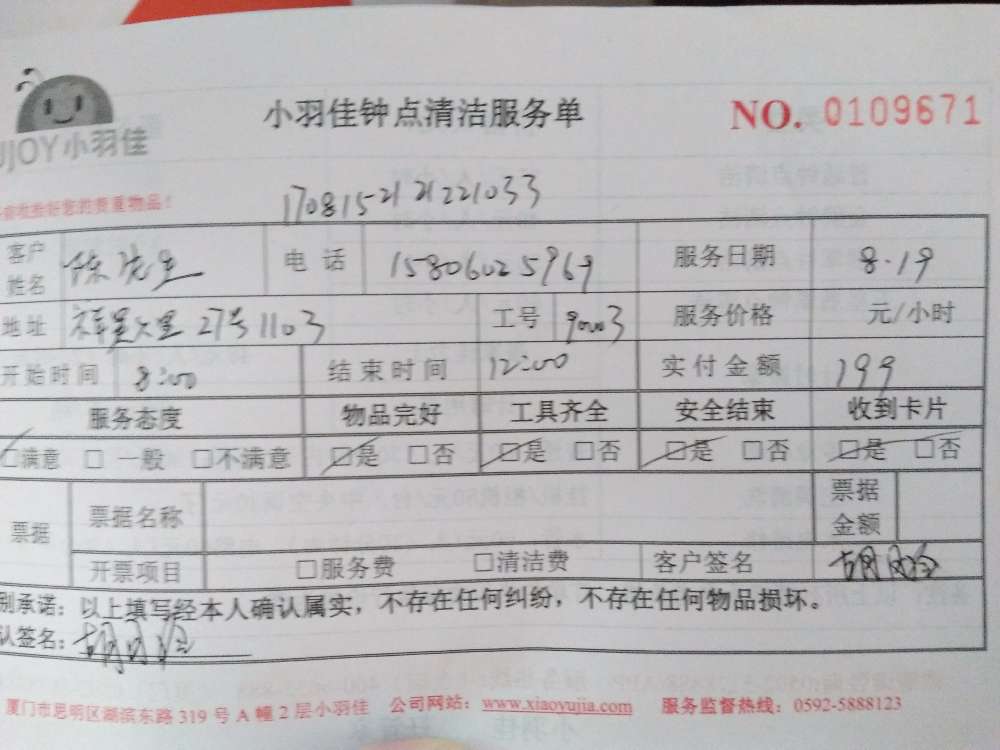 小羽佳钟点清洁服务单 NO. 0109671
UJOY小羽佳
您的贵重物品！
17081521 21221033
客户姓名 陈先生 电话 15806025969 服务日期 8.19
地址 27号1103 工号 90003 服务价格 元/小时
开始时间 8:00 结束时间 12:00 实付金额 199
服务态度 物品完好 工具齐全 安全结束 收到卡片
☑满意 □一般 □不满意 ☑是 □否 ☑是 □否 ☑是 □否 ☑是 □否
票据 票据名称 票据金额
开票项目 □服务费 □清洁费 客户签名
别承诺：以上填写经本人确认属实，不存在任何纠纷，不存在任何物品损坏。
认签名：
厦门市思明区湖滨东路 319 号 A 幢 2 层小羽佳 公司网站：www.xiaoyujia.com 服务监督热线：0592-5888123